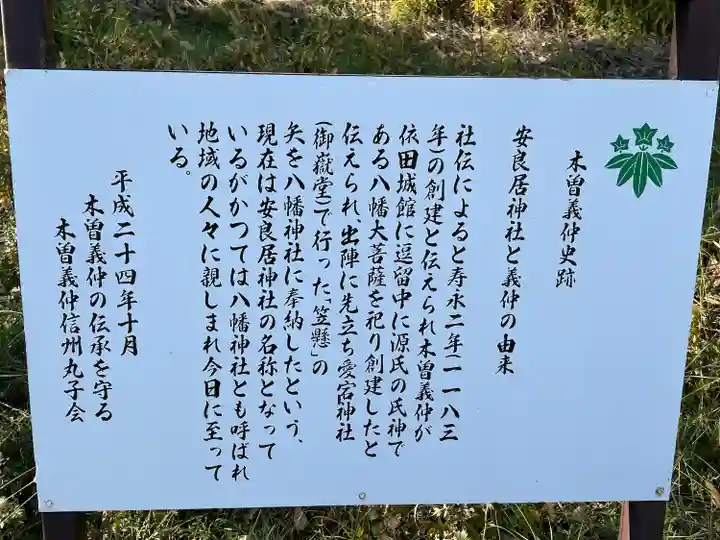 木曽義仲史跡
安良居神社と義仲の由来
社伝によると寿永二年(一一八三
年)の創建と伝えられ木曽義仲が
依田城館に逗留中に源氏の氏神で
ある八幡大菩薩を祀り創建したと
伝えられ、出陣に先立ち愛宕神社
(御嶽堂)で行った「笠懸」の
矢を八幡神社に奉納したという、
現在は安良居神社の名称となって
いるがかつては八幡神社とも呼ばれ
地域の人々に親しまれ今日に至って
いる。
平成二十四年十月
木曽義仲の伝承を守る
木曽義仲信州丸子会